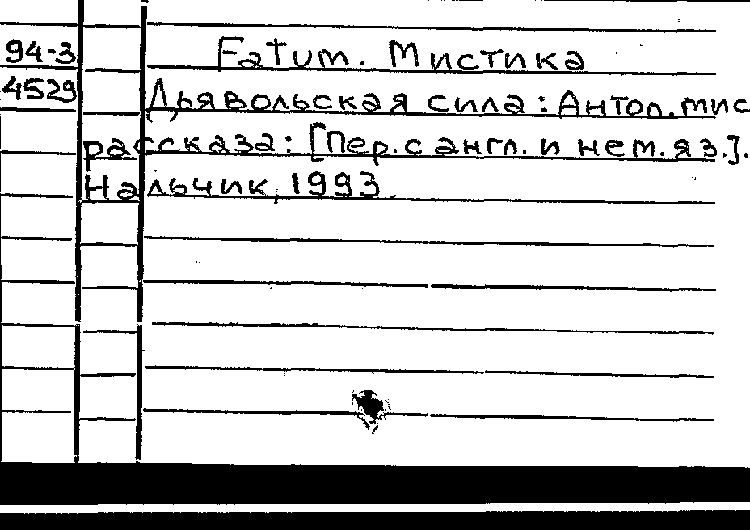 94-3 Fatum. Мистика
4529 Дьявольская сила: Антол. мис
рассказа: [Пер. с англ. и нем. яз.].
Нальчик, 1993